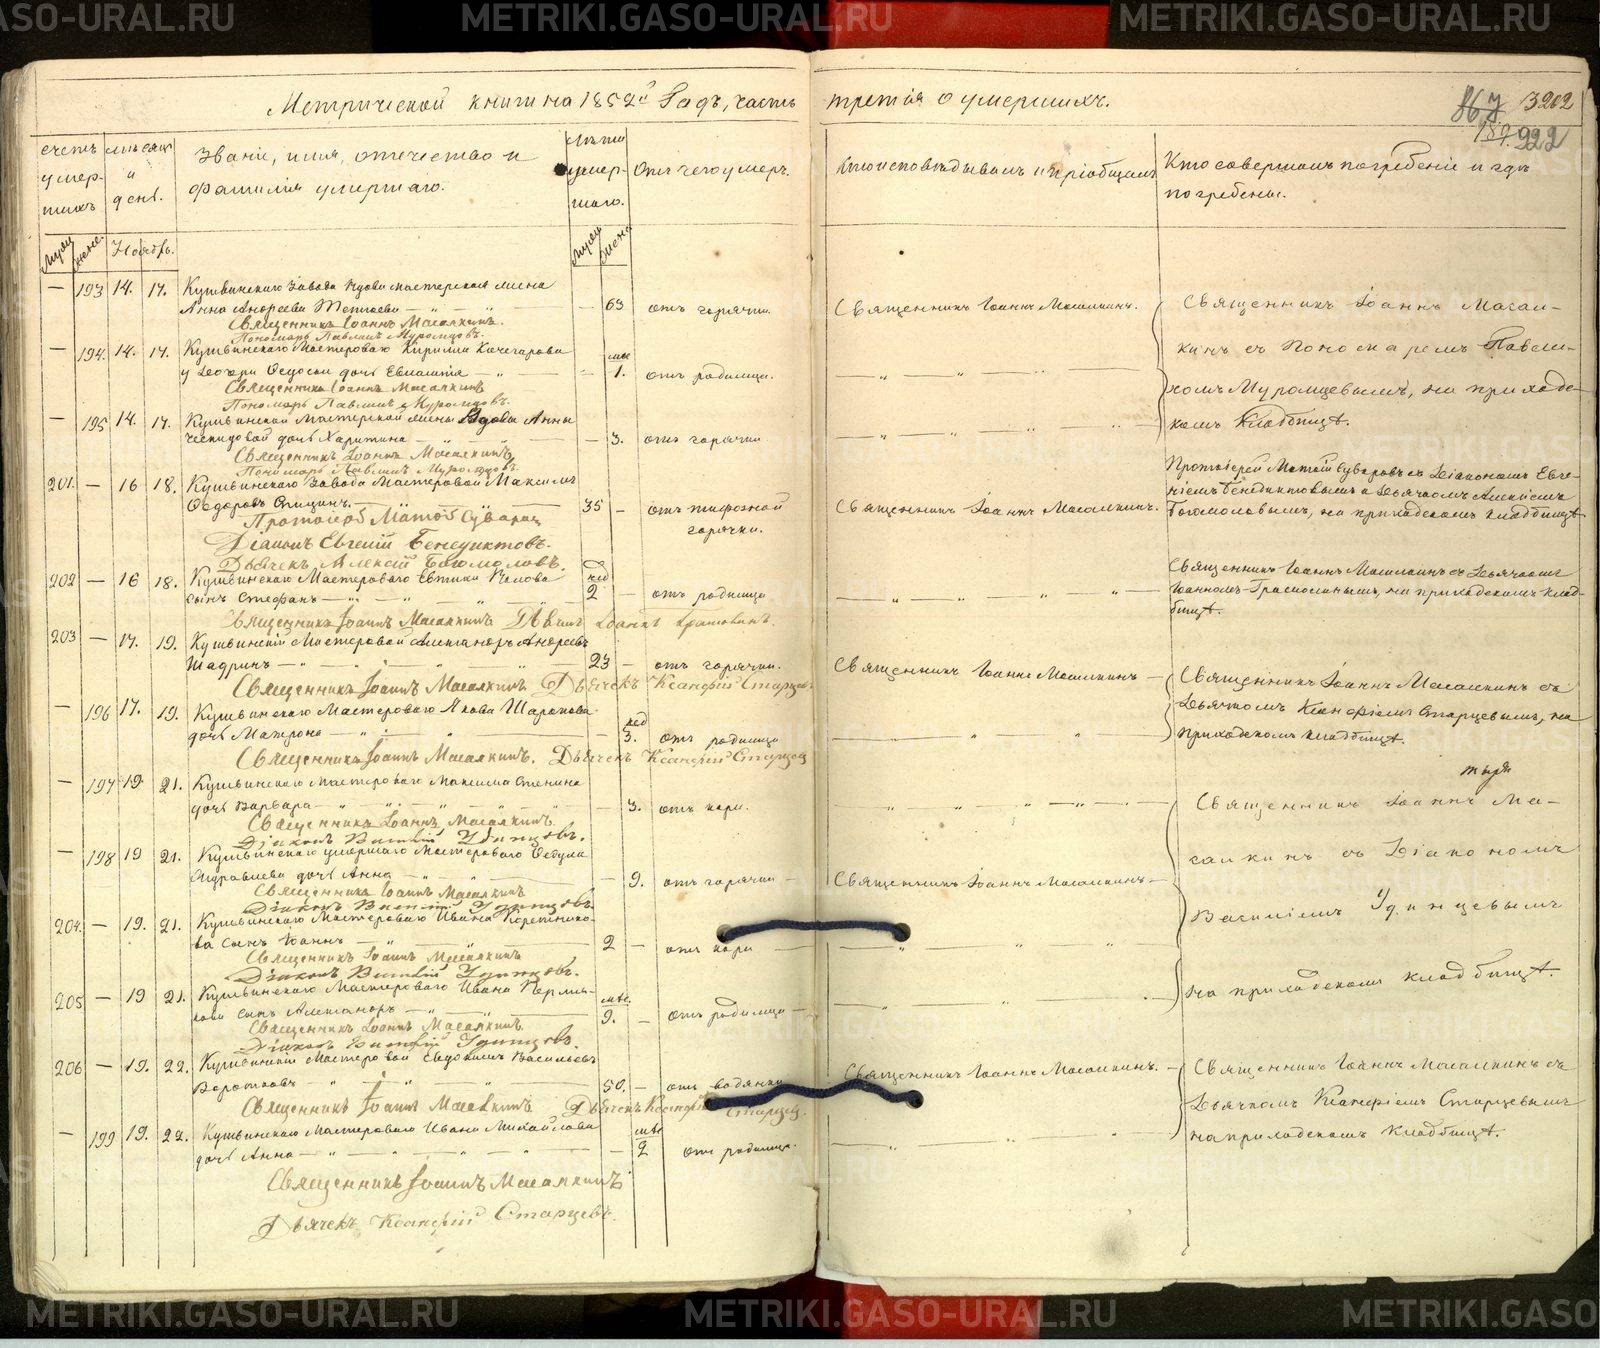 METRIKI.GASO-URAL.RU
Метрической книги на 1852й Годъ, часть третія о умершихъ.
3202
922
счетъ умер-шихъ
мѣсяцъ и день.
Званіе, имя, отчество и фамилія умершаго.
Лѣта умер-шаго.
Отъ чего умеръ.
Кто исповѣдывалъ и пріобщалъ
Кто совершалъ погребеніе и гдѣ погребены.
Ноябрь.
— 193 14. 17. Кушвинскаго Завода Вдова мастерская жена
Анна Андреева — 63 отъ горячки. Священникъ Іоаннъ Масалкинъ.
Священникъ Іоаннъ Масалкинъ.
Пономарь Павлинъ Муромцовъ.
Священникъ Іоаннъ Масал-
кинъ съ Пономаремъ Павли-
номъ Муромцевымъ, на приход-
скомъ Кладбищѣ.
— 194. 14. 17. Кушвинскаго Мастероваго Кирилла Кочегарова
у дочери Ѳедосьи дочь — 1. отъ родимца.
Священникъ Іоаннъ Масалкинъ
Пономарь Павлинъ Муромцовъ.
— 195 14. 17. Кушвинской Мастерской жены Вдовы Анны
дочь Харитина — 3. отъ горячки
Священникъ Іоаннъ Масалкинъ
Пономарь Павлинъ Муромцовъ
201. — 16 18. Кушвинскаго Завода Мастеровой Максимъ
Ѳедоровъ Спицинъ 35 — отъ тифозной горячки. Священникъ Іоаннъ Масалкинъ.
Протоіерей Матѳій Суваровъ съ Діакономъ Евге-
ніемъ Бенедиктовымъ и Дьячкомъ Алексіемъ
Богомоловымъ, на приходскомъ кладбищѣ
Діаконъ Евгеній Бенедиктовъ.
Дьячекъ Алексій Богомоловъ.
202 — 16 18. Кушвинскаго Мастероваго Евтихія
сынъ Стефанъ нед 2 — отъ родимца
Священникъ Іоаннъ Масалкинъ
Священникъ Іоаннъ Масалкинъ съ Дьячкомъ
на приходскомъ клад-
бищѣ.
203 — 17. 19. Кушвинскій Мастеровой Александръ Андреевъ
Шадринъ 23 — отъ горячки. Священникъ Іоаннъ Масалкинъ
Священникъ Іоаннъ Масалкинъ Дьячекъ Ксанфій Старцевъ
Священникъ Іоаннъ Масалкинъ съ
Дьячкомъ Ксанфіемъ Старцевымъ, на
приходскомъ кладбищѣ.
— 196 17. 19. Кушвинскаго Мастероваго Якова Шарапова
дочь Матрона — нед 3. отъ родимца
Священникъ Іоаннъ Масалкинъ. Дьячекъ Ксанфій Старцевъ
— 197 19 21. Кушвинскаго Мастероваго Максима
дочь Варвара — 3. отъ кори.
Священникъ Іоаннъ Масалкинъ
Діаконъ Василій Удинцовъ.
Священникъ Іоаннъ Ма-
салкинъ съ Діакономъ
Василіемъ Удинцевымъ
на приходскомъ кладбищѣ.
— 198 19 21. Кушвинскаго умершаго Мастероваго Ѳедула
дочь Анна — 9. отъ горячки — Священникъ Іоаннъ Масалкинъ
Священникъ Іоаннъ Масалкинъ
Діаконъ Василій Удинцовъ
204. — 19. 21. Кушвинскаго Мастероваго Ивана
сынъ Іоаннъ 2 — отъ кори
Священникъ Іоаннъ Масалкинъ
Діаконъ Василій Удинцовъ.
205 — 19 21. Кушвинскаго Мастероваго Ивана
сынъ Александръ мѣс. 9. — отъ родимца
Священникъ Іоаннъ Масалкинъ
Діаконъ Василій Удинцовъ
206 — 19. 22. Кушвинскій Мастеровой Евдокимъ Васильевъ
50. — отъ водянки Священникъ Іоаннъ Масалкинъ.
Священникъ Іоаннъ Масалкинъ Дьячекъ Ксанфій Старцевъ
Священникъ Іоаннъ Масалкинъ съ
Дьячкомъ Ксанфіемъ Старцевымъ
на приходскомъ Кладбищѣ.
— 199 19. 22. Кушвинскаго Мастероваго Ивана Михайлова
дочь Анна — мѣс 2 отъ родимца.
Священникъ Іоаннъ Масалкинъ
Дьячекъ Ксанфій Старцевъ.
METRIKI.GASO-URAL.RU